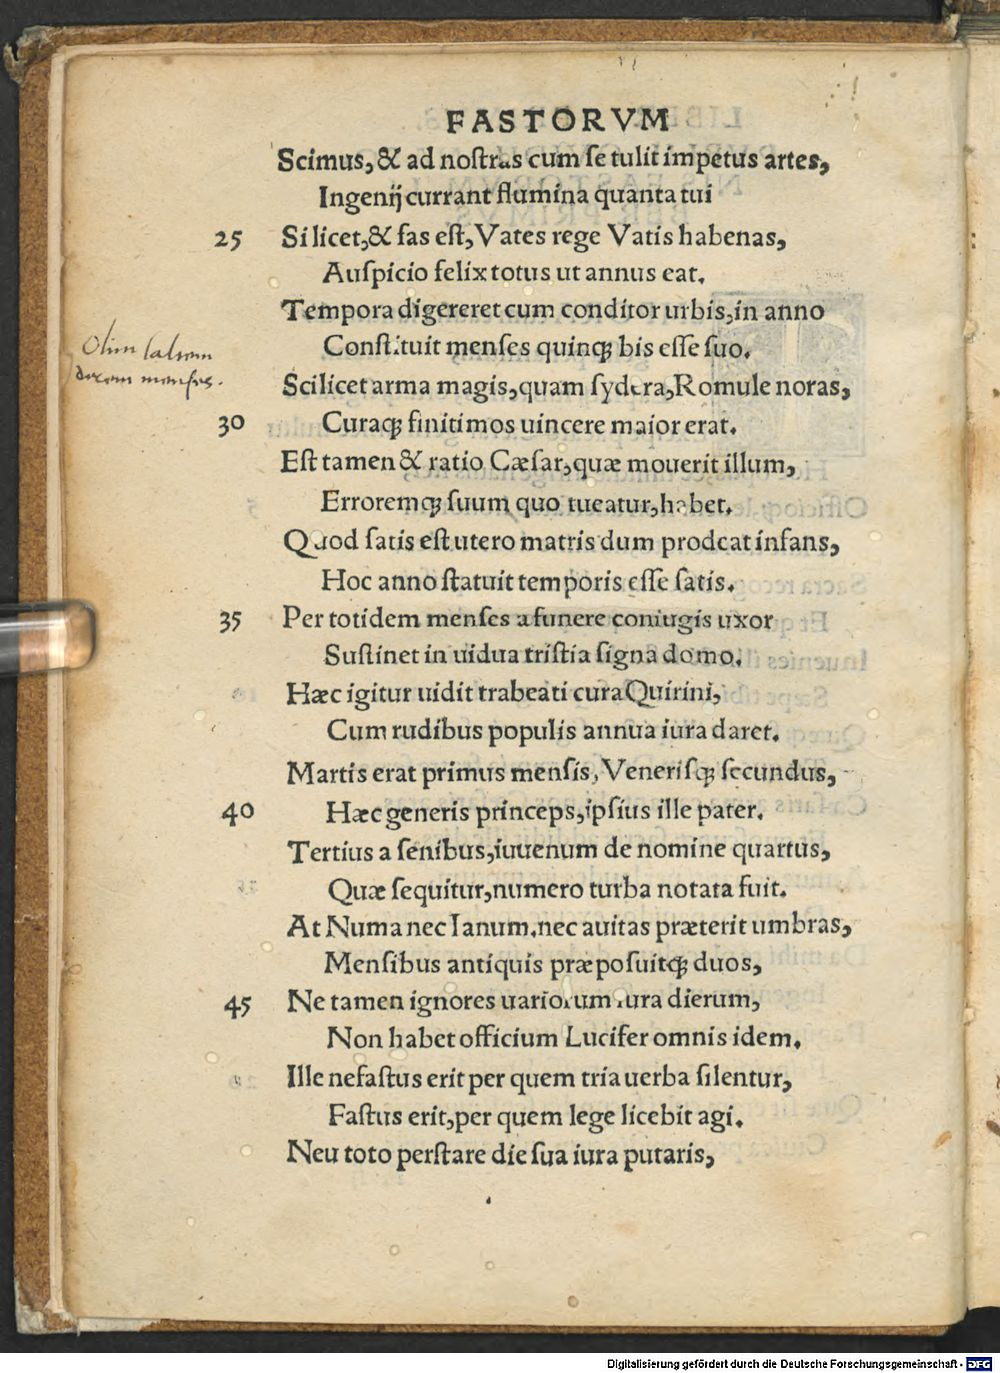 FASTORVM
Scimus, & ad nostras cum se tulit impetus artes,
Ingenij currant flumina quanta tui
25 Si licet, & fas est, Vates rege Vatis habenas,
Auspicio felix totus ut annus eat.
Tempora digereret cum conditor urbis, in anno
Constituit menses quinqꝫ bis esse suo.
Olim
decem menses.
Scilicet arma magis, quam sydera, Romule noras,
30 Curaqꝫ finitimos uincere maior erat.
Est tamen & ratio Cæsar, quæ mouerit illum,
Erroremqꝫ suum quo tueatur, habet.
Quod satis est utero matris dum prodeat infans,
Hoc anno statuit temporis esse satis.
35 Per totidem menses a funere coniugis uxor
Sustinet in uidua tristia signa domo.
Hæc igitur uidit trabeati cura Quirini,
Cum rudibus populis annua iura daret.
Martis erat primus mensis, Venerisqꝫ secundus,
40 Hæc generis princeps, ipsius ille pater.
Tertius a senibus, iuuenum de nomine quartus,
Quæ sequitur, numero turba notata fuit.
At Numa nec Ianum, nec auitas præterit umbras,
Mensibus antiquis præposuitqꝫ duos,
45 Ne tamen ignores uariorum iura dierum,
Non habet officium Lucifer omnis idem.
Ille nefastus erit per quem tria uerba silentur,
Fastus erit, per quem lege licebit agi.
Neu toto perstare die sua iura putaris,
Digitalisierung gefördert durch die Deutsche Forschungsgemeinschaft - DFG